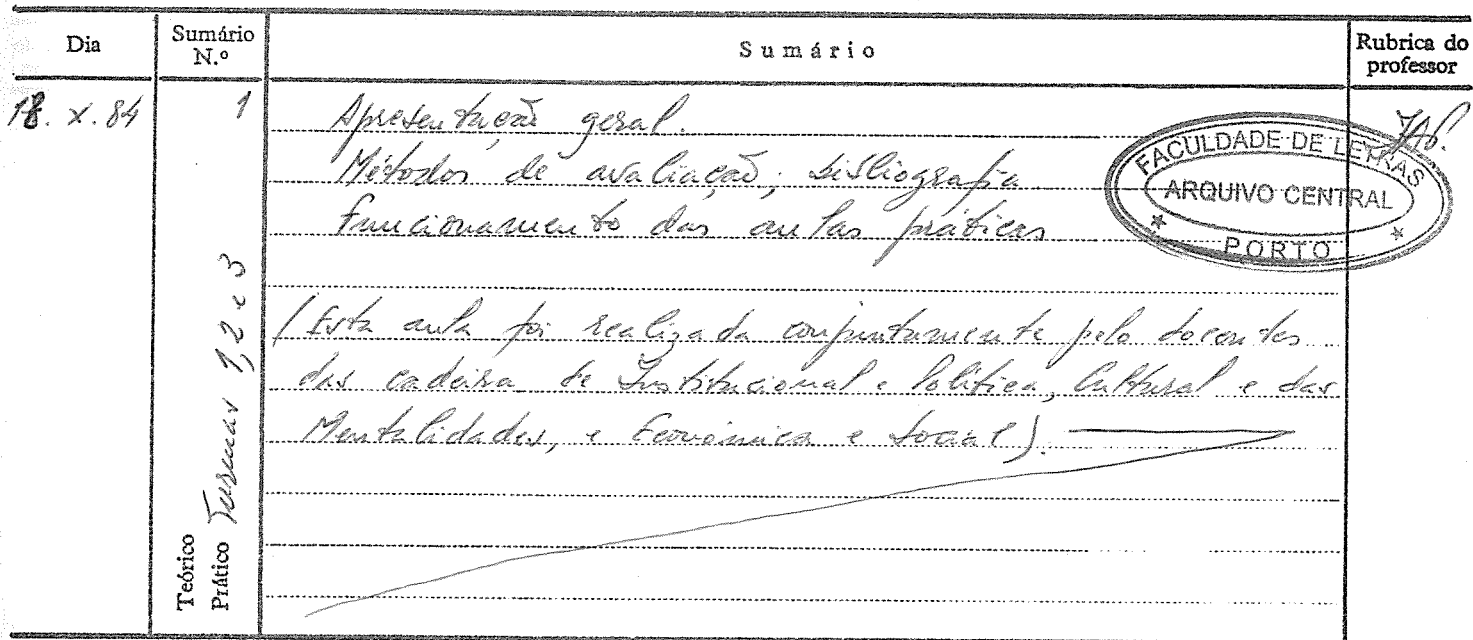 Dia
Sumário N.º
Sumário
Rubrica do professor
18. X. 84
1
Apresentação geral.
Métodos de avaliação; bibliografia
Funcionamento das aulas práticas
(Esta aula foi realizada conjuntamente pelo docentes
das cadeira de Institucional e Política, Cultural e das
Mentalidades, e Económica e Social).
Teórico
Prático Turmas 1, 2 e 3
FACULDADE DE LETRAS
ARQUIVO CENTRAL
* PORTO *